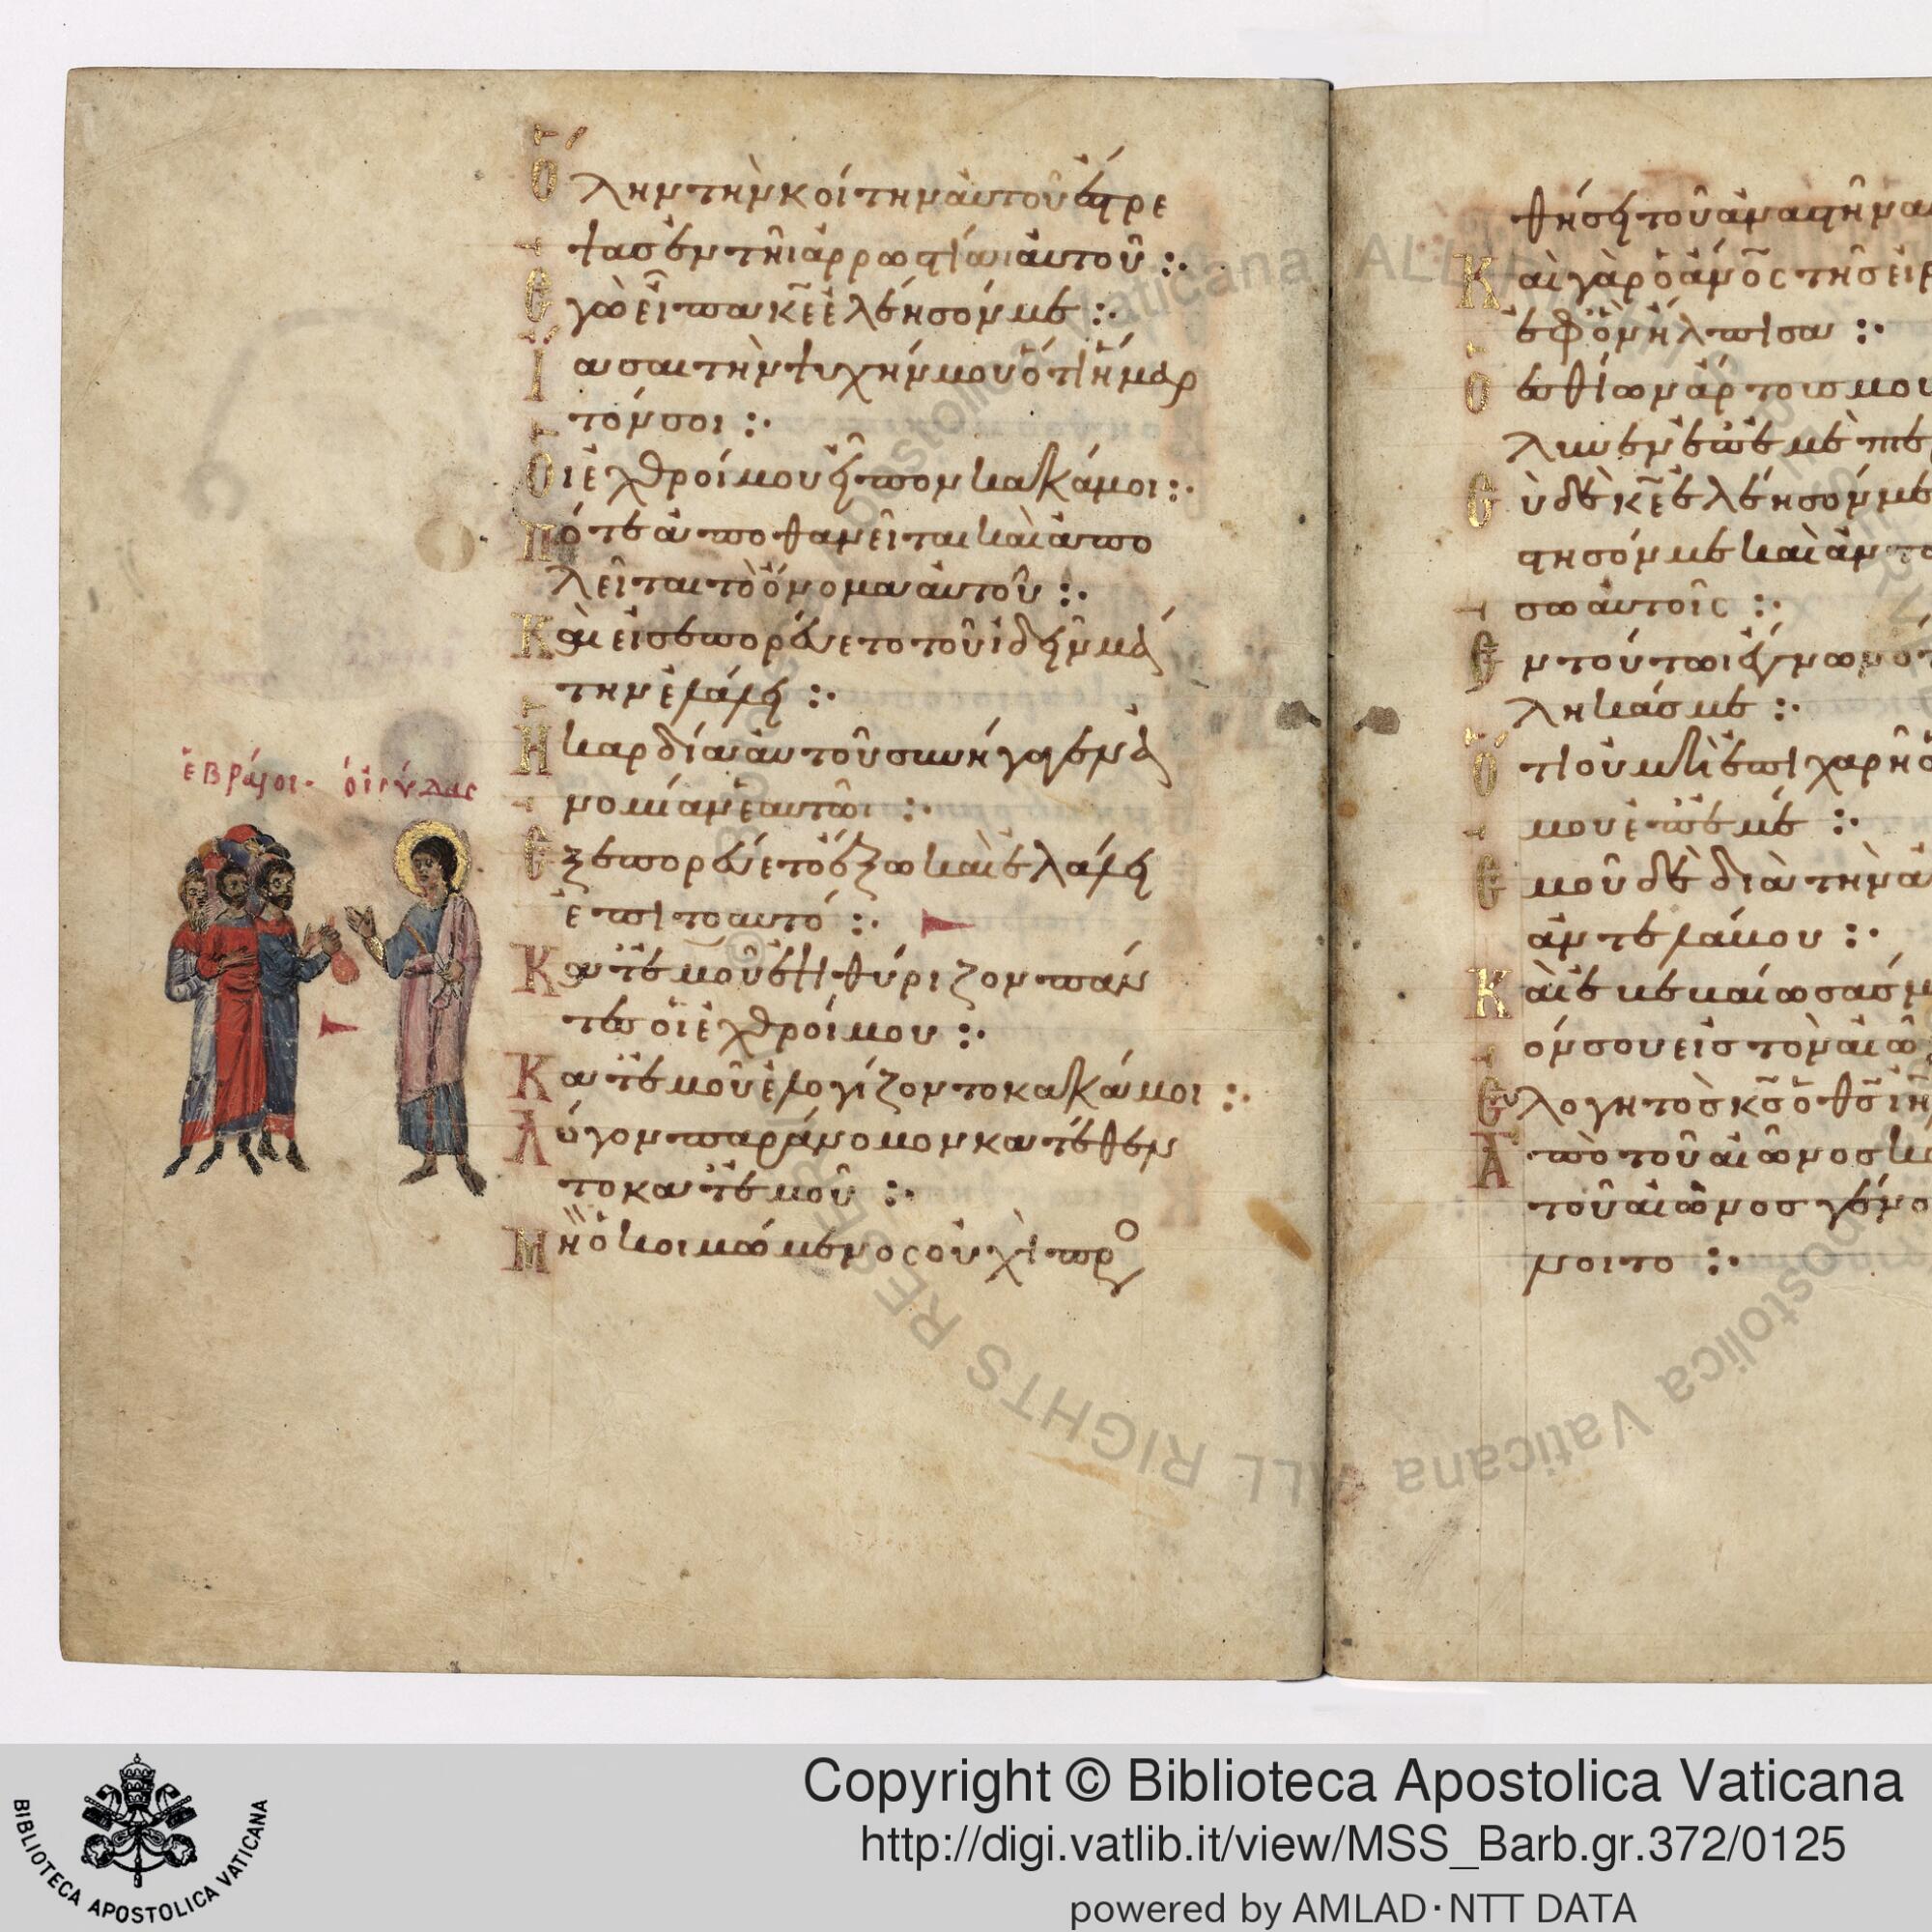 Ὅλην τὴν κοίτην αὐτοῦ ἔστρε
ψας ἐν τῆι ἀρρωστίαι αὐτοῦ :·
Ἐγὼ εἶπα κ̅ε̅ ἐλέησόν με :·
Ἴασαι τὴν ψυχήν μου ὅτι ἥμαρ
τόν σοι :·
Οἱ ἐχθροί μου εἶπον κακά μοι :·
Πότε ἀποθανεῖται καὶ ἀπο
λεῖται τὸ ὄνομα αὐτοῦ :·
Καὶ εἰσεπορεύετο τοῦ ἰδεῖν μά
την ἐλάλει :·
Ἡ καρδία αὐτοῦ συνήγαγεν ἀ
νομίαν ἑαυτῶι :·
Ἐξεπορεύετο ἔξω καὶ ἐλάλει
ἐπιτοαυτό :·
ἑβραῖοι· ὁ ἰούδας
Κατ' ἐμοῦ ἐψιθύριζον πάν
τες οἱ ἐχθροί μου :·
Κατ' ἐμοῦ ἐλογίζοντο κακά μοι :·
Λόγον παράνομον κατέθεν
το κατ' ἐμοῦ :·
Μὴ ὁ κοιμώμενος οὐχὶ προ
θήσει τοῦ ἀναστῆνα
Καὶ γὰρ ὁ ἀν̅ο̅ς τῆς εἰρ
ἐφ' ὃν ἤλπισα :·
Ὁ ἐσθίων ἄρτους μου
Σὺ δὲ κ̅ε̅ ἐλέησόν με
στησόν με καὶ ἀντα
σω αὐτοῖς :·
Ἐν τούτωι ἔγνων ὅτ
ληκάς με :·
Ὅτι οὐ μὴ ἐπιχαρῆ ὁ
μου ἐπ' ἐμέ :·
Ἐμοῦ δὲ διὰ τὴν ἀ
ἀντελάβου :·
Καὶ ἐβεβαίωσάς μ
όν σου εἰς τὸν αἰῶ
Εὐλογητὸς κ̅ς̅ ὁ θ̅ς̅ ἰη̅
Ἀπὸ τοῦ αἰῶνος κ
τοῦ αἰῶνος γένο
νοιτο :·
Copyright © Biblioteca Apostolica Vaticana
http://digi.vatlib.it/view/MSS_Barb.gr.372/0125
powered by AMLAD·NTT DATA
BIBLIOTECA APOSTOLICA VATICANA